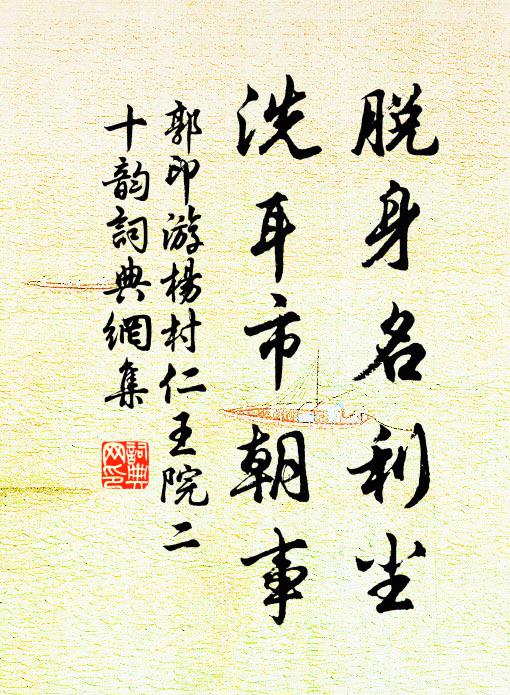 脱身名利尘
洗耳市朝事
郭印游杨村仁王院二
十韵词典网集
詞典
网印